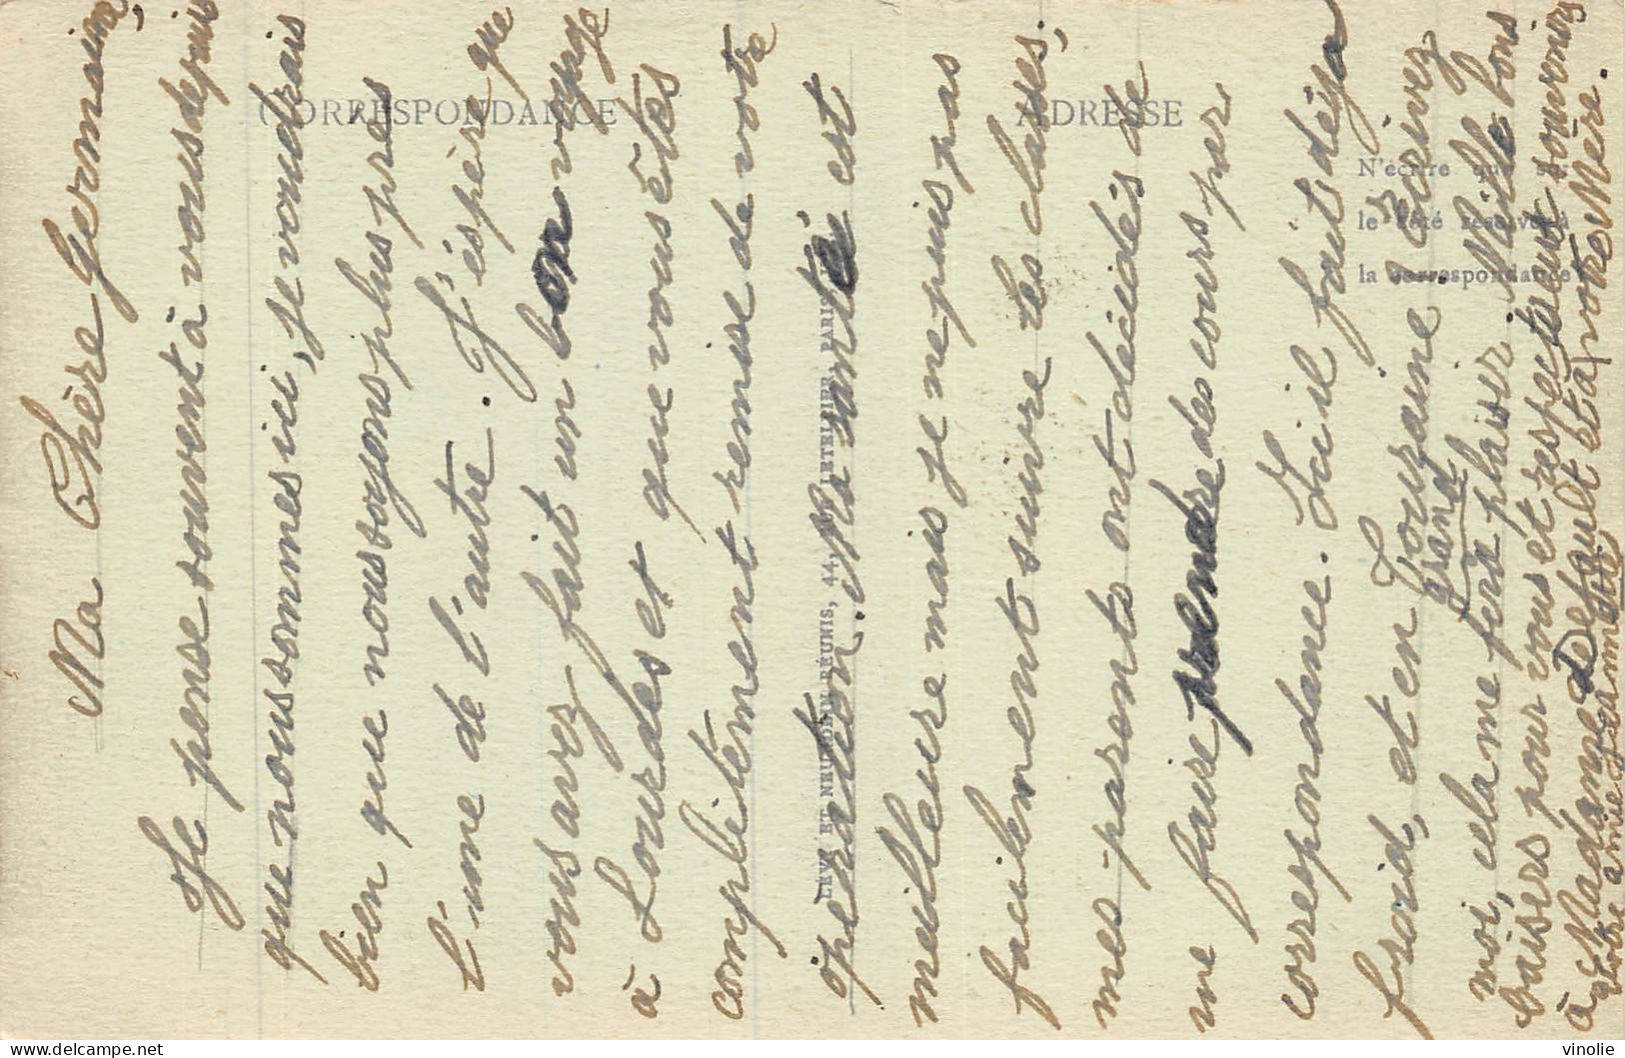 Ma Chère Germaine,
Je pense souvent à vous depuis
que nous sommes ici, je voudrais
bien que nous soyons plus près
l'une de l'autre. J'éspère que
vous avez fait un bon voyage
à Lourdes et que vous êtes
complètement remise de votre
opération. Ma santé est
meilleure mais je ne puis pas
facilement suivre les classes,
mes parents ont décidés de
me faire prendre des cours par
correspondance. Ici il fait déja
froid, et en Touraine ? Ecrivez
moi, cela me fera grand plaisir. Mille bons
baisers pour vous et respectueux souvenirs
à Madame Default et à votre Mère.
Votre amie
CORRESPONDANCE
ADRESSE
N'écrire que sur
le côté réservé à
la correspondance
LÉVY ET NEURDEIN RÉUNIS, 44, LETELLIER, PARIS
vinolie
Delcampe.net